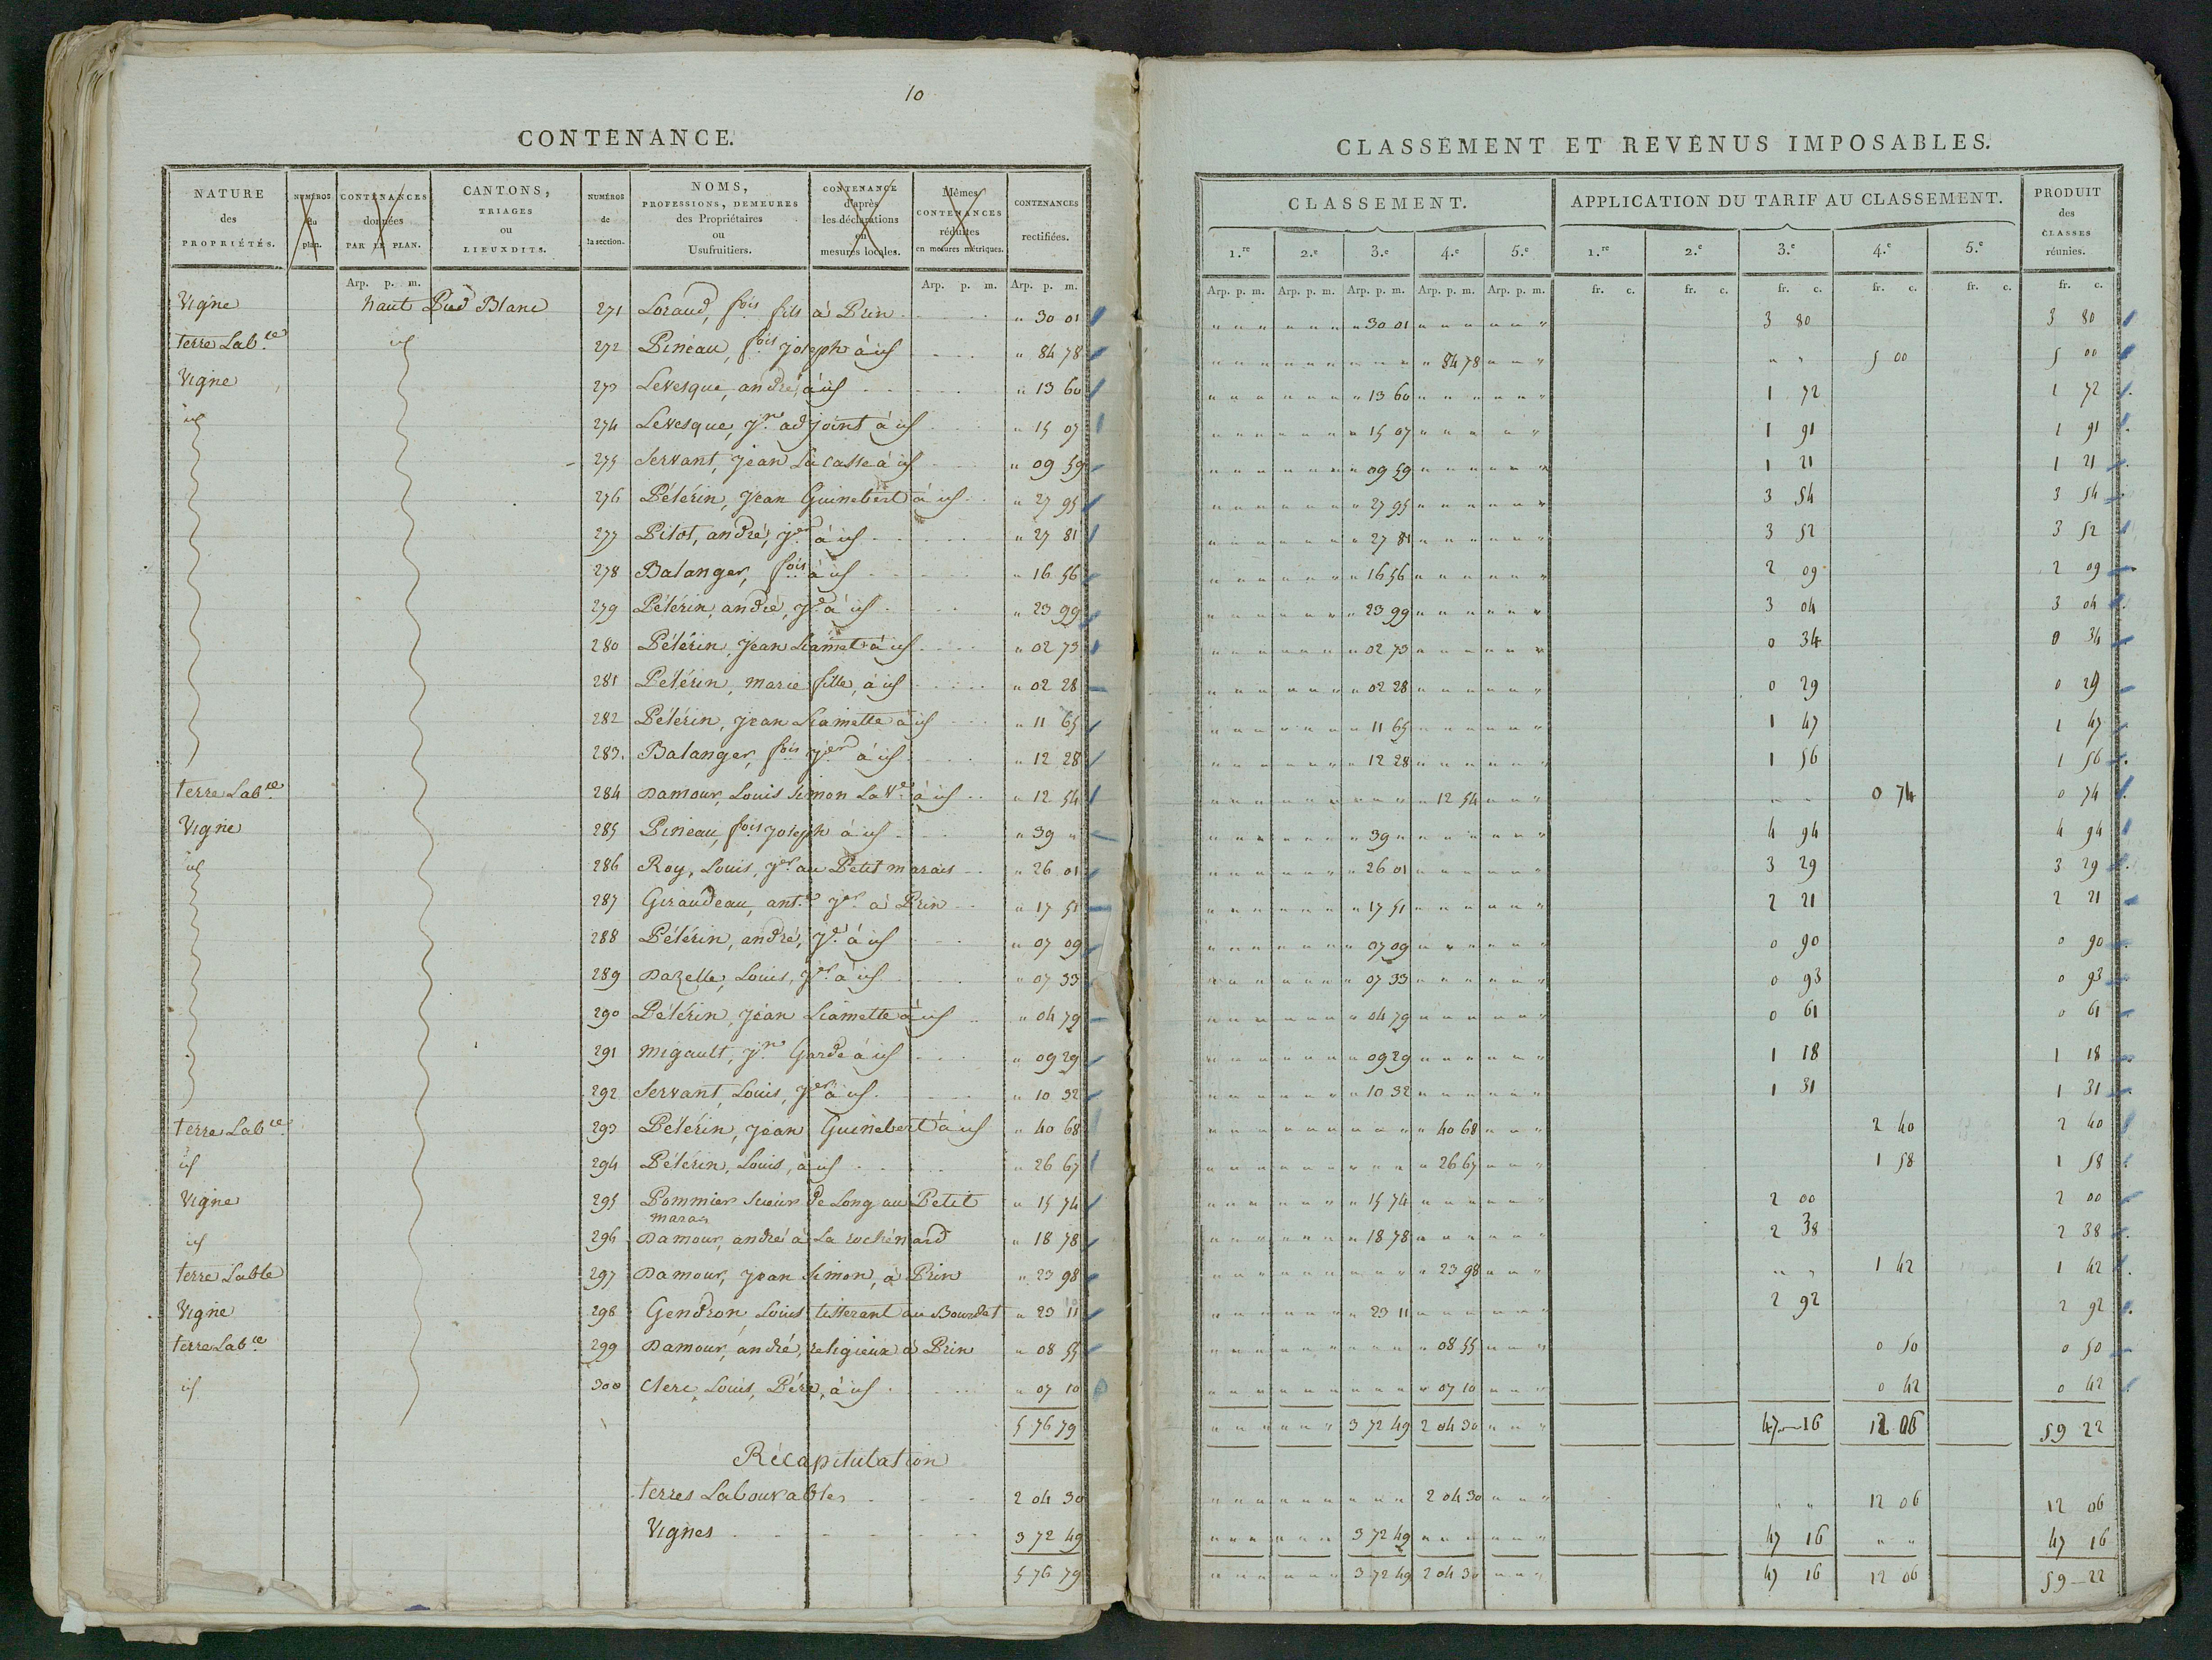 10
CONTENANCE.
NATURE des PROPRIÉTÉS.
NUMÉROS du plan.
CONTENANCES données PAR LE PLAN.
CANTONS, TRIAGES ou LIEUXDITS.
NUMÉROS de la section.
NOMS, PROFESSIONS, DEMEURES des Propriétaires ou Usufruitiers.
CONTENANCE d'après les déclarations en mesures locales.
Mêmes CONTENANCES réduites en mesures métriques.
CONTENANCES rectifiées.
Arp. p. m. Arp. p. m. Arp. p. m.
Vigne haut Pied Blanc 271 Loraud, fois fils à Prin " 30 01
terre Lab.le id 272 Pineau, fois joseph à id " 84 78
Vigne 273 Levesque, andré à id " 13 60
id 274 Levesque, jn adjoint à id " 15 07
275 Servant, jean à id " 09 59
276 Pélérin, jean Guinebert à id " 27 95
277 Pitot, andré, jer à id " 27 81
278 Balanger, fois à id " 16 56
279 Pélérin, andré, jer à id " 23 99
280 Pélérin, jean à id " 02 73
281 Pélérin, marie fille, à id " 02 28
282 Pélérin, jean Liamette à id " 11 65
283. Balanger, fois jer à id " 12 28
terre Lab.le 284 Damour, Louis Simon La Ve à id " 12 54
Vigne 285 Pineau, fois joseph à id " 39 "
id 286 Roy, Louis, jer au Petit marais " 26 01
287 Giraudeau, ant.e jer à Prin " 17 51
288 Pélérin, andré, jer à id " 07 09
289 Dazelle, Louis, jer à id " 07 33
290 Pélérin, jean Liamette à id " 04 79
291 migault, jn Garde à id " 09 29
292 Servant, Louis, jer à id " 10 32
terre Lab.le 293 Pélérin, jean Guinebert à id " 40 68
id 294 Pélérin, Louis, à id " 26 67
Vigne 295 Pommier Scieur de Long au Petit marais " 15 74
id 296 Damour, andré à La rochénard " 18 78
terre Lable 297 Damour, jean Simon, à Prin " 23 98
Vigne 298 Gendron, Louis tisserant au Bourdet " 23 11
terre Lab.le 299 Damour, andré, religieux à Prin " 08 55
id 300 Clerc, Louis, Père, à id " 07 10
5 76 79
Récapitulation
terres Labourables 2 04 30
Vignes 3 72 49
5 76 79
CLASSEMENT ET REVENUS IMPOSABLES.
CLASSEMENT. APPLICATION DU TARIF AU CLASSEMENT. PRODUIT des CLASSES réunies.
1.re 2.e 3.e 4.e 5.e 1.re 2.e 3.e 4.e 5.e
Arp. p. m. Arp. p. m. Arp. p. m. Arp. p. m. Arp. p. m. fr. c. fr. c. fr. c. fr. c. fr. c. fr. c.
" 30 01 3 80 3 80
" 84 78 " " 5 00 5 00
" 13 60 1 72 1 72
" 15 07 1 91 1 91
" 09 59 1 21 1 21
" 27 95 3 54 3 54
" 27 81 3 52 3 52
" 16 56 2 09 2 09
" 23 99 3 04 3 04
" 02 73 0 34 0 34
" 02 28 0 29 0 29
" 11 65 1 47 1 47
" 12 28 1 56 1 56
" 12 54 " " 0 74 0 74
" 39 " 4 94 4 94
" 26 01 3 29 3 29
" 17 51 2 21 2 21
" 07 09 0 90 0 90
" 07 33 0 93 0 93
" 04 79 0 61 0 61
" 09 29 1 18 1 18
" 10 32 1 31 1 31
" 40 68 2 40 2 40
" 26 67 1 58 1 58
" 15 74 2 00 2 00
" 18 78 2 38 2 38
" 23 98 " " 1 42 1 42
" 23 11 2 92 2 92
" 08 55 0 50 0 50
" 07 10 0 42 0 42
3 72 49 2 04 30 47 16 12 06 59 22
2 04 30 " " 12 06 12 06
3 72 49 47 16 " " 47 16
3 72 49 2 04 30 47 16 12 06 59 22